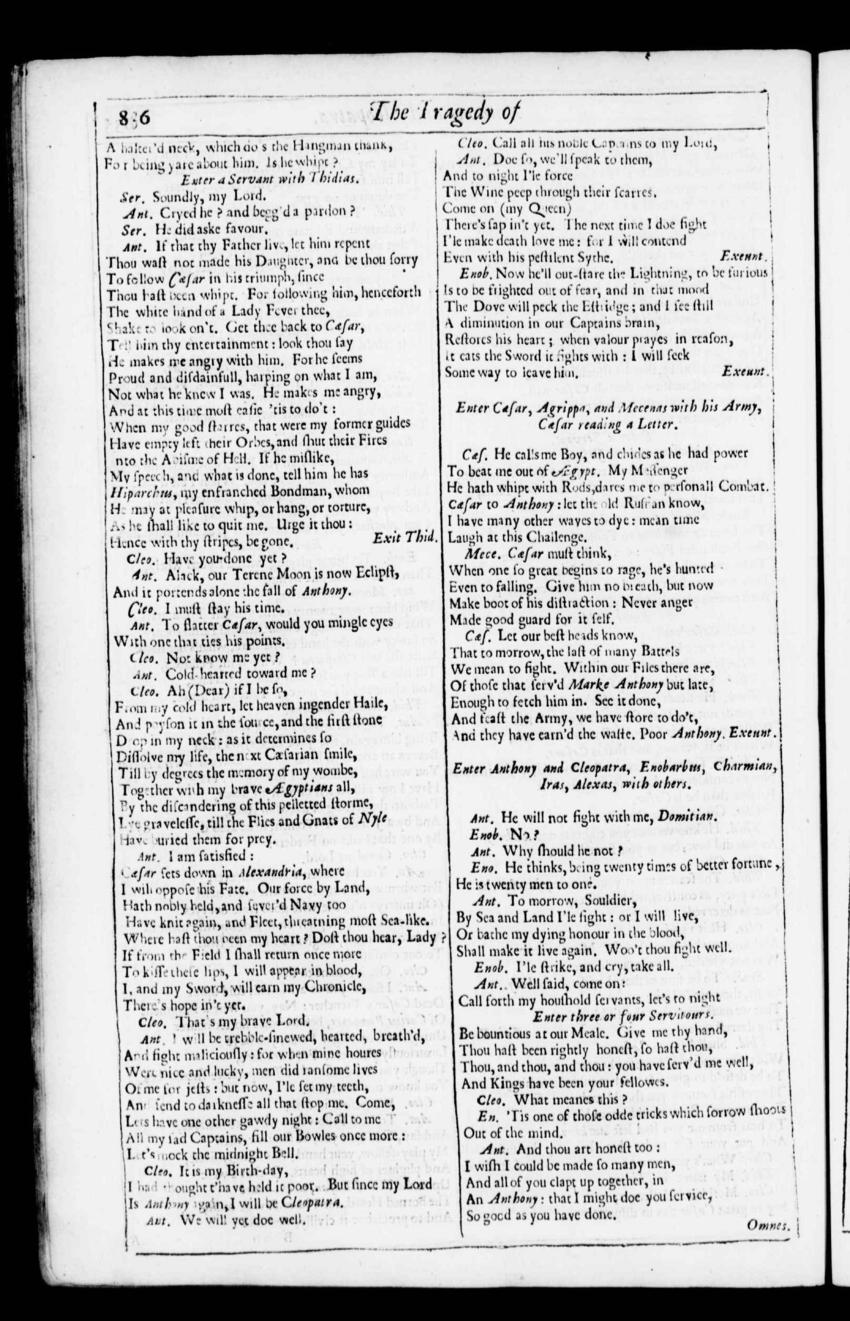 836
The Tragedy of
A halter'd neck, which do s the Hangman thank,
For being yare about him. Is he whipt ?
Enter a Servant with Thidias.
Ser. Soundly, my Lord.
Ant. Cryed he ? and begg'd a pardon ?
Ser. He did aske favour.
Ant. If that thy Father live, let him repent
Thou waſt not made his Daughter, and be thou ſorry
To follow Cæſar in his triumph, ſince
Thou haſt been whipt. For following him, henceforth
The white hand of a Lady Fever thee,
Shake to look on't. Get thee back to Cæſar,
Tell him thy entertainment : look thou ſay
He makes me angry with him. For he ſeems
Proud and diſdainfull, harping on what I am,
Not what he knew I was. He makes me angry,
And at this time moſt eaſie 'tis to do't :
When my good ſtarres, that were my former guides
Have empty left their Orbes, and ſhut their Fires
nto the Abiſme of Hell. If he miſlike,
My ſpeech, and what is done, tell him he has
Hiparchus, my enfranched Bondman, whom
He may at pleaſure whip, or hang, or torture,
As he ſhall like to quit me. Urge it thou :
Hence with thy ſtripes, be gone. Exit Thid.
Cleo. Have you done yet ?
Ant. Alack, our Terene Moon is now Eclipſt,
And it portends alone the fall of Anthony.
Cleo. I muſt ſtay his time.
Ant. To flatter Cæſar, would you mingle eyes
With one that ties his points.
Cleo. Not know me yet ?
Ant. Cold-hearted toward me ?
Cleo. Ah (Dear) if I be ſo,
From my cold heart, let heaven ingender Haile,
And poyſon it in the ſource, and the firſt ſtone
Drop in my neck : as it determines ſo
Diſſolve my life, the next Cæſarian ſmile,
Till by degrees the memory of my wombe,
Together with my brave Ægyptians all,
By the diſcandering of this pelletted ſtorme,
Lye graveleſſe, till the Flies and Gnats of Nyle
Have buried them for prey.
Ant. I am ſatisfied :
Cæſar ſets down in Alexandria, where
I will oppoſe his Fate. Our force by Land,
Hath nobly held, and ſever'd Navy too
Have knit again, and Fleet, threatning moſt Sea-like.
Where haſt thou been my heart ? Doſt thou hear, Lady ?
If from the Field I ſhall return once more
To kiſſe theſe lips, I will appear in blood,
I, and my Sword, will earn my Chronicle,
There's hope in't yet.
Cleo. That's my brave Lord.
Ant. I will be trebble-ſinewed, hearted, breath'd,
And fight maliciouſly : for when mine houres
Were nice and lucky, men did ranſome lives
Of me for jeſts : but now, I'le ſet my teeth,
And ſend to darkneſſe all that ſtop me. Come,
Lets have one other gawdy night : Call to me
All my ſad Captains, fill our Bowles once more :
Let's mock the midnight Bell.
Cleo. It is my Birth-day,
I had thought t'have held it poor. But ſince my Lord
Is Anthony again, I will be Cleopatra.
Ant. We will yet doe well.
Cleo. Call all his noble Captains to my Lord,
Ant. Doe ſo, we'll ſpeak to them,
And to night I'le force
The Wine peep through their ſcarres.
Come on (my Queen)
There's ſap in't yet. The next time I doe fight
I'le make death love me : for I will contend
Even with his peſtilent Sythe. Exeunt.
Enob. Now he'll out-ſtare the Lightning, to be furious
Is to be frighted out of fear, and in that mood
The Dove will peck the Eſtridge ; and I ſee ſtill
A diminution in our Captains brain,
Reſtores his heart ; when valour prayes in reaſon,
It eats the Sword it fights with : I will ſeek
Some way to leave him. Exeunt.
Enter Cæſar, Agrippa, and Mecenas with his Army,
Cæſar reading a Letter.
Cæſ. He calls me Boy, and chides as he had power
To beat me out of Ægypt. My Meſſenger
He hath whipt with Rods, dares me to perſonall Combat.
Cæſar to Anthony : let the old Ruffian know,
I have many other wayes to dye : mean time
Laugh at this Challenge.
Mece. Cæſar muſt think,
When one ſo great begins to rage, he's hunted
Even to falling. Give him no breath, but now
Make boot of his diſtraction : Never anger
Made good guard for it ſelf.
Cæſ. Let our beſt heads know,
That to morrow, the laſt of many Battels
We mean to fight. Within our Files there are,
Of thoſe that ſerv'd Marke Anthony but late,
Enough to fetch him in. See it done,
And feaſt the Army, we have ſtore to do't,
And they have earn'd the waſte. Poor Anthony. Exeunt.
Enter Anthony and Cleopatra, Enobarbus, Charmian,
Iras, Alexas, with others.
Ant. He will not fight with me, Domitian.
Enob. No ?
Ant. Why ſhould he not ?
Eno. He thinks, being twenty times of better fortune,
He is twenty men to one.
Ant. To morrow, Souldier,
By Sea and Land I'le fight : or I will live,
Or bathe my dying honour in the blood,
Shall make it live again. Woo't thou fight well.
Enob. I'le ſtrike, and cry, take all.
Ant. Well ſaid, come on :
Call forth my houſhold ſervants, let's to night
Enter three or four Servitours.
Be bountious at our Meale. Give me thy hand,
Thou haſt been rightly honeſt, ſo haſt thou,
Thou, and thou, and thou : you have ſerv'd me well,
And Kings have been your fellowes.
Cleo. What meanes this ?
En. 'Tis one of thoſe odde tricks which ſorrow ſhoots
Out of the mind.
Ant. And thou art honeſt too :
I wiſh I could be made ſo many men,
And all of you clapt up together, in
An Anthony : that I might doe you ſervice,
So good as you have done.
Omnes.